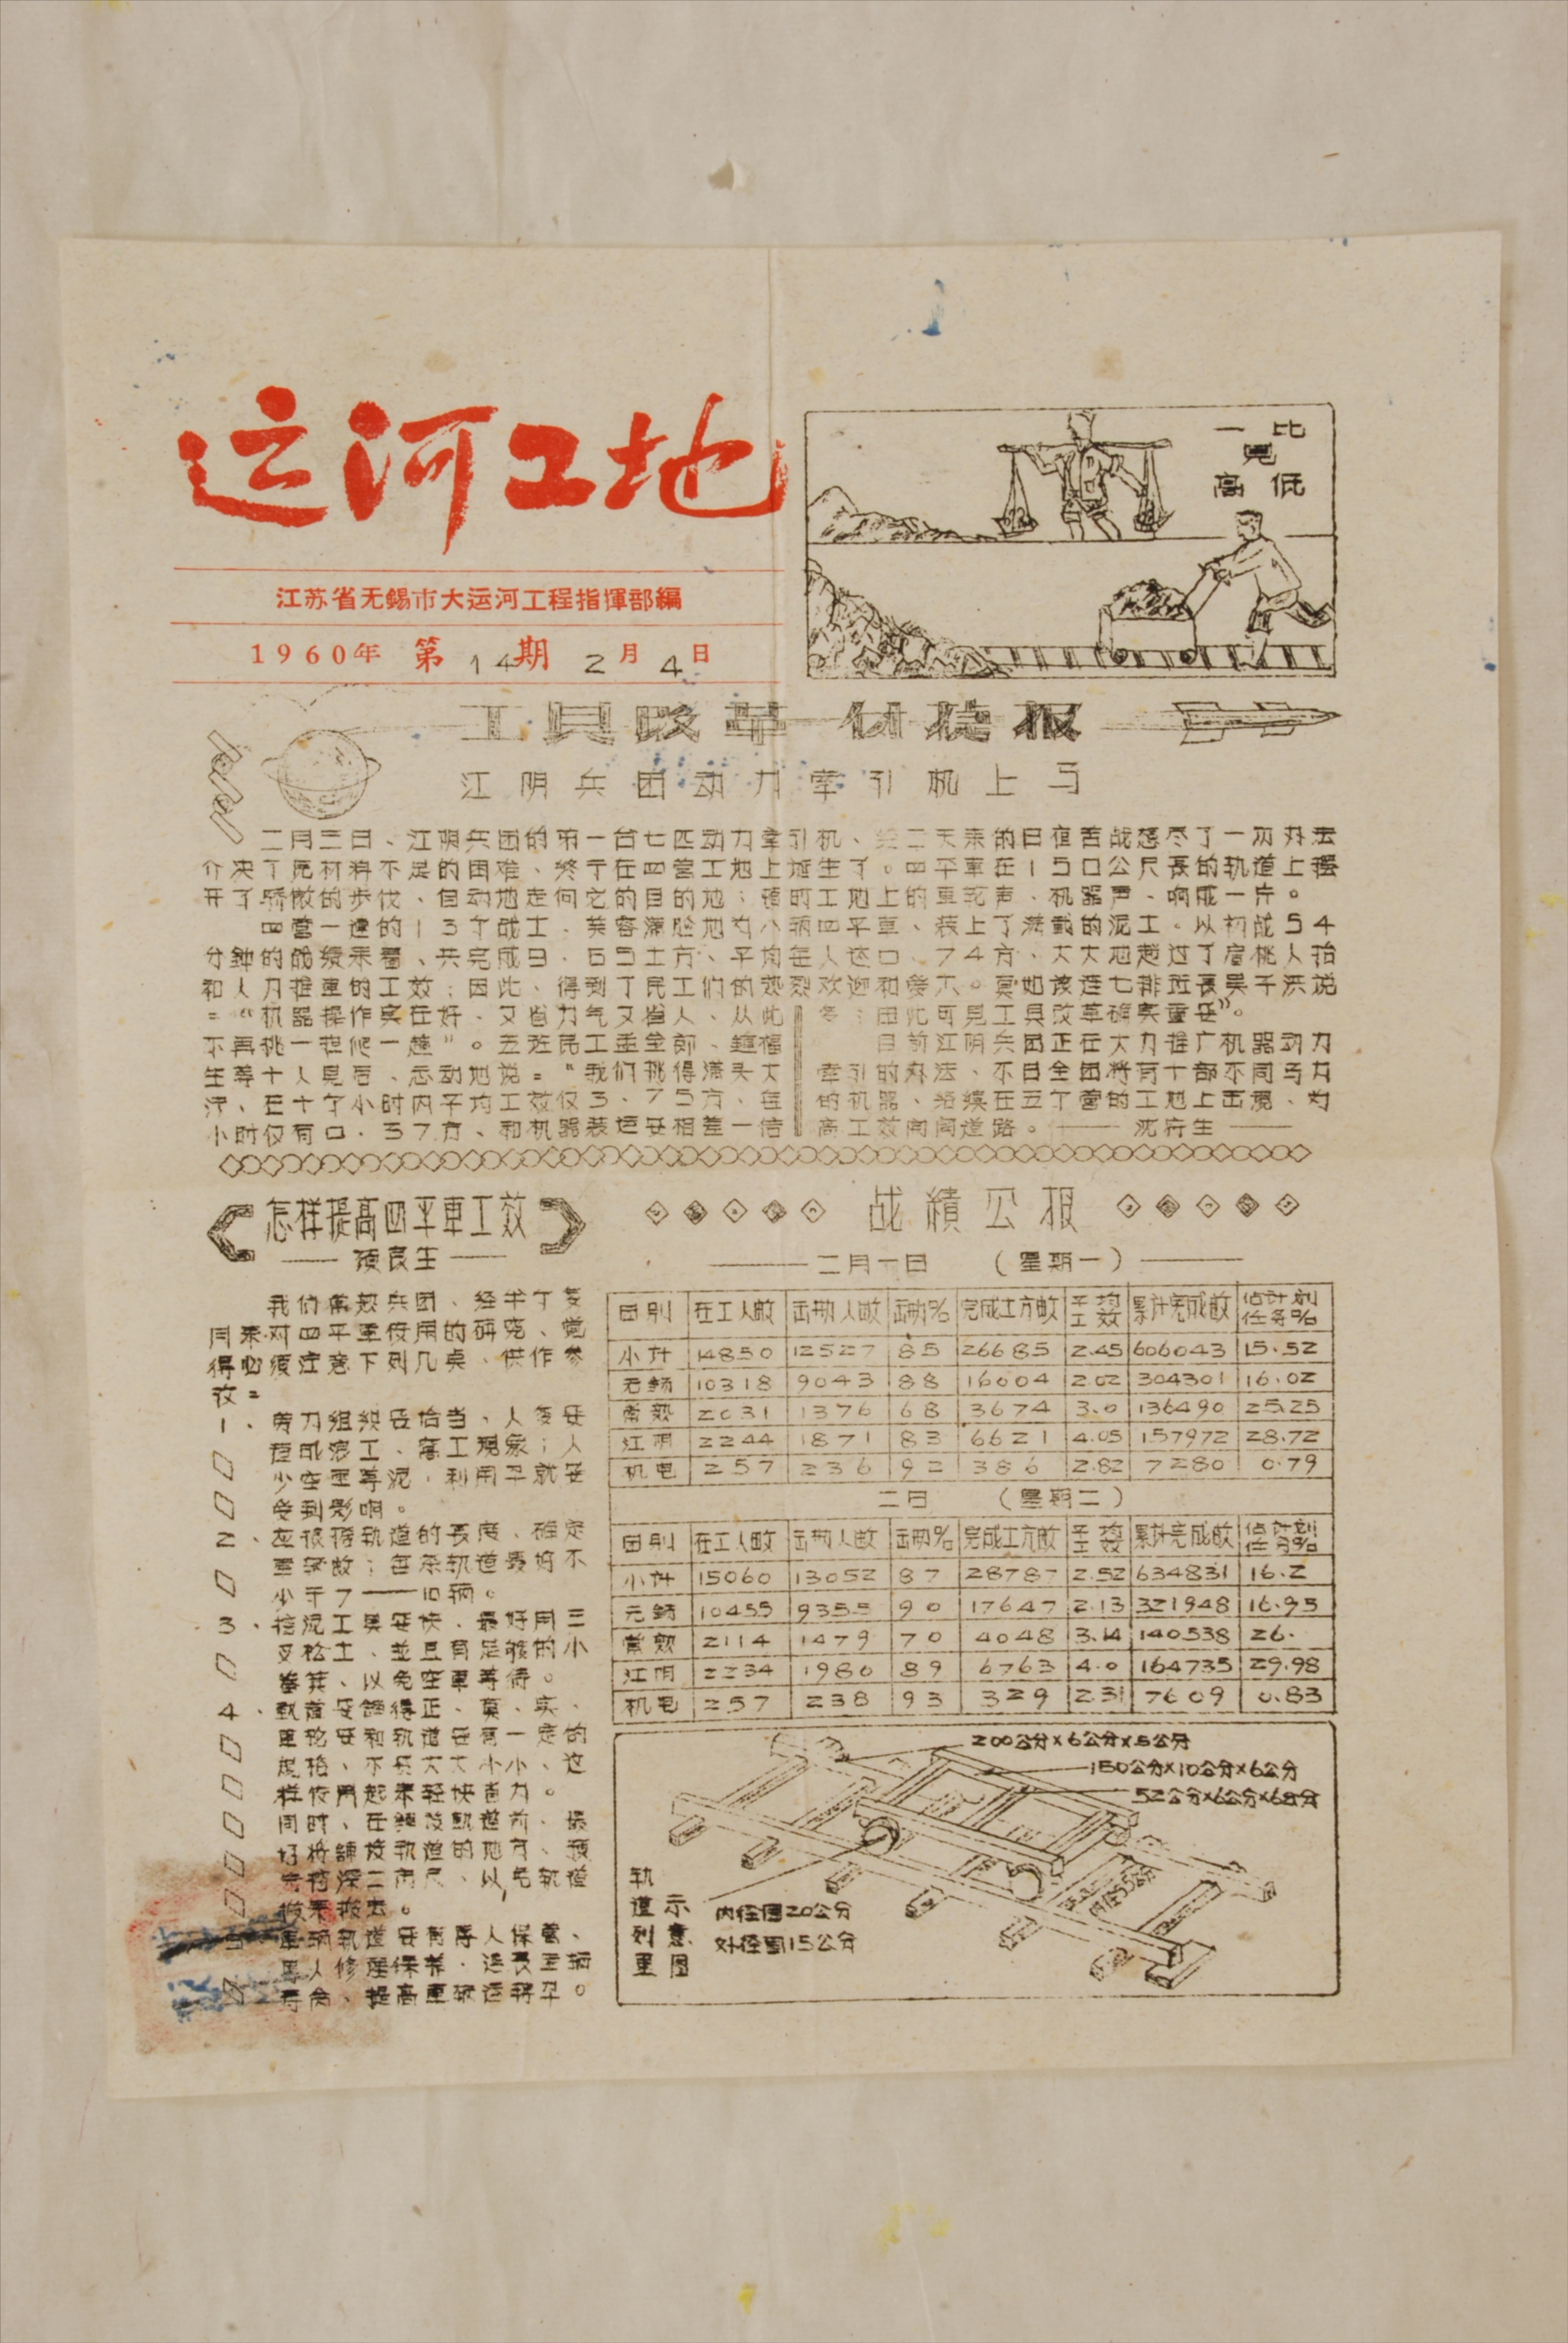 运河工地
江苏省无錫市大运河工程指揮部編
1960年 第14期 2月4日
一比
見
高低
工具改革 传捷报
江阴兵团动力牵引机上马
二月三日、江阴兵团的第一台七匹动力牵引机、经二天来的日夜苦战想尽了一切办法
介决了原材料不足的困难、终于在四营工地上诞生了。四平車在150公尺長的轨道上
开了骄傲的步伐、自动地走向它的目的地；頓时工地上的車轮声、机器声、响成一片。
四营一連的13个战士、笑容滿脸地为八辆四平車、装上了满載的泥土。以初战54
分鈡的的績来看、共完成9.69土方、平均每人达0.74方、大大地超过了肩挑人抬
和人力推車的工效；因此、得到了民工们的热烈欢迎和爱。莫如该连七排班長吴子洪说
："机器操作实在好、又省力气又省人、从此
不再挑一程爬一趟"。五班民工孟全郎、
生等十人見后、感动地说："我们挑得滿头大
汗、在十个小时内平均工效仅3.75方、每
小时仅有0.37方、和机器装运要相差一倍
多；由此可見工具改革确实重要"。
目前江阴兵团正在大力推广机器动力
牵引的办法、不日全团将有十部不同马力
的机器、陆续在五个营的工地上出現、为
高工效闯闯道路。——沈 生——
怎样提高四平車工效
——顾良生——
我们常熟兵团、经半个多
月来对四平車使用的研究、觉
得必须注意下列几桌、供作参
攷：
1、劳力組織要恰当、人多要
造成浪工、窩工現象；人
少空車等泥，利用率就要
受到影响。
2、应根据轨道的長度、确定
車辆数；每条轨道最好不
小于7——10辆。
3、挖泥工具要快、最好用三
叉松土、並且有足够的小
畚箕、以免空車等待。
4、轨道要鋪得正、平、实、
車轮要和轨道要有一定的
規格、不要大大小小、这
样使用起来轻快省力。
同时、在鋪设轨道前、最
好将鋪设轨道的地方、预
先挖深二市尺、以免轨道
搬来搬去。
5、車辆轨道要有專人保管、
專人修理保养，延長車辆
寿命、提高車辆运转率。
战績公报
二月一日 （星期一）
团别 在工人数 出勤人数 出勤% 完成土方数 平均工效 累計完成数 佔計划任务%
小計 14850 12527 85 26685 2.45 606043 15.52
无錫 10318 9043 88 16004 2.02 304301 16.02
常熟 2031 1376 68 3674 3.0 136490 25.25
江阴 2244 1871 83 6621 4.05 157972 28.72
机电 257 236 92 386 2.82 7280 0.79
二日 （星期二）
团别 在工人数 出勤人数 出勤% 完成土方数 平均工效 累計完成数 佔計划任务%
小計 15060 13052 87 28787 2.52 634831 16.2
无錫 10455 9355 90 17647 2.13 321948 16.95
常熟 2114 1479 70 4048 3.14 140538 26.
江阴 2234 1980 89 6763 4.0 164735 29.98
机电 257 238 93 329 2.31 7609 0.83
200公分×6公分×5公分
150公分×10公分×6公分
52公分×6公分×6公分
内径圆20公分
外径圆15公分
轨道列車
示意图